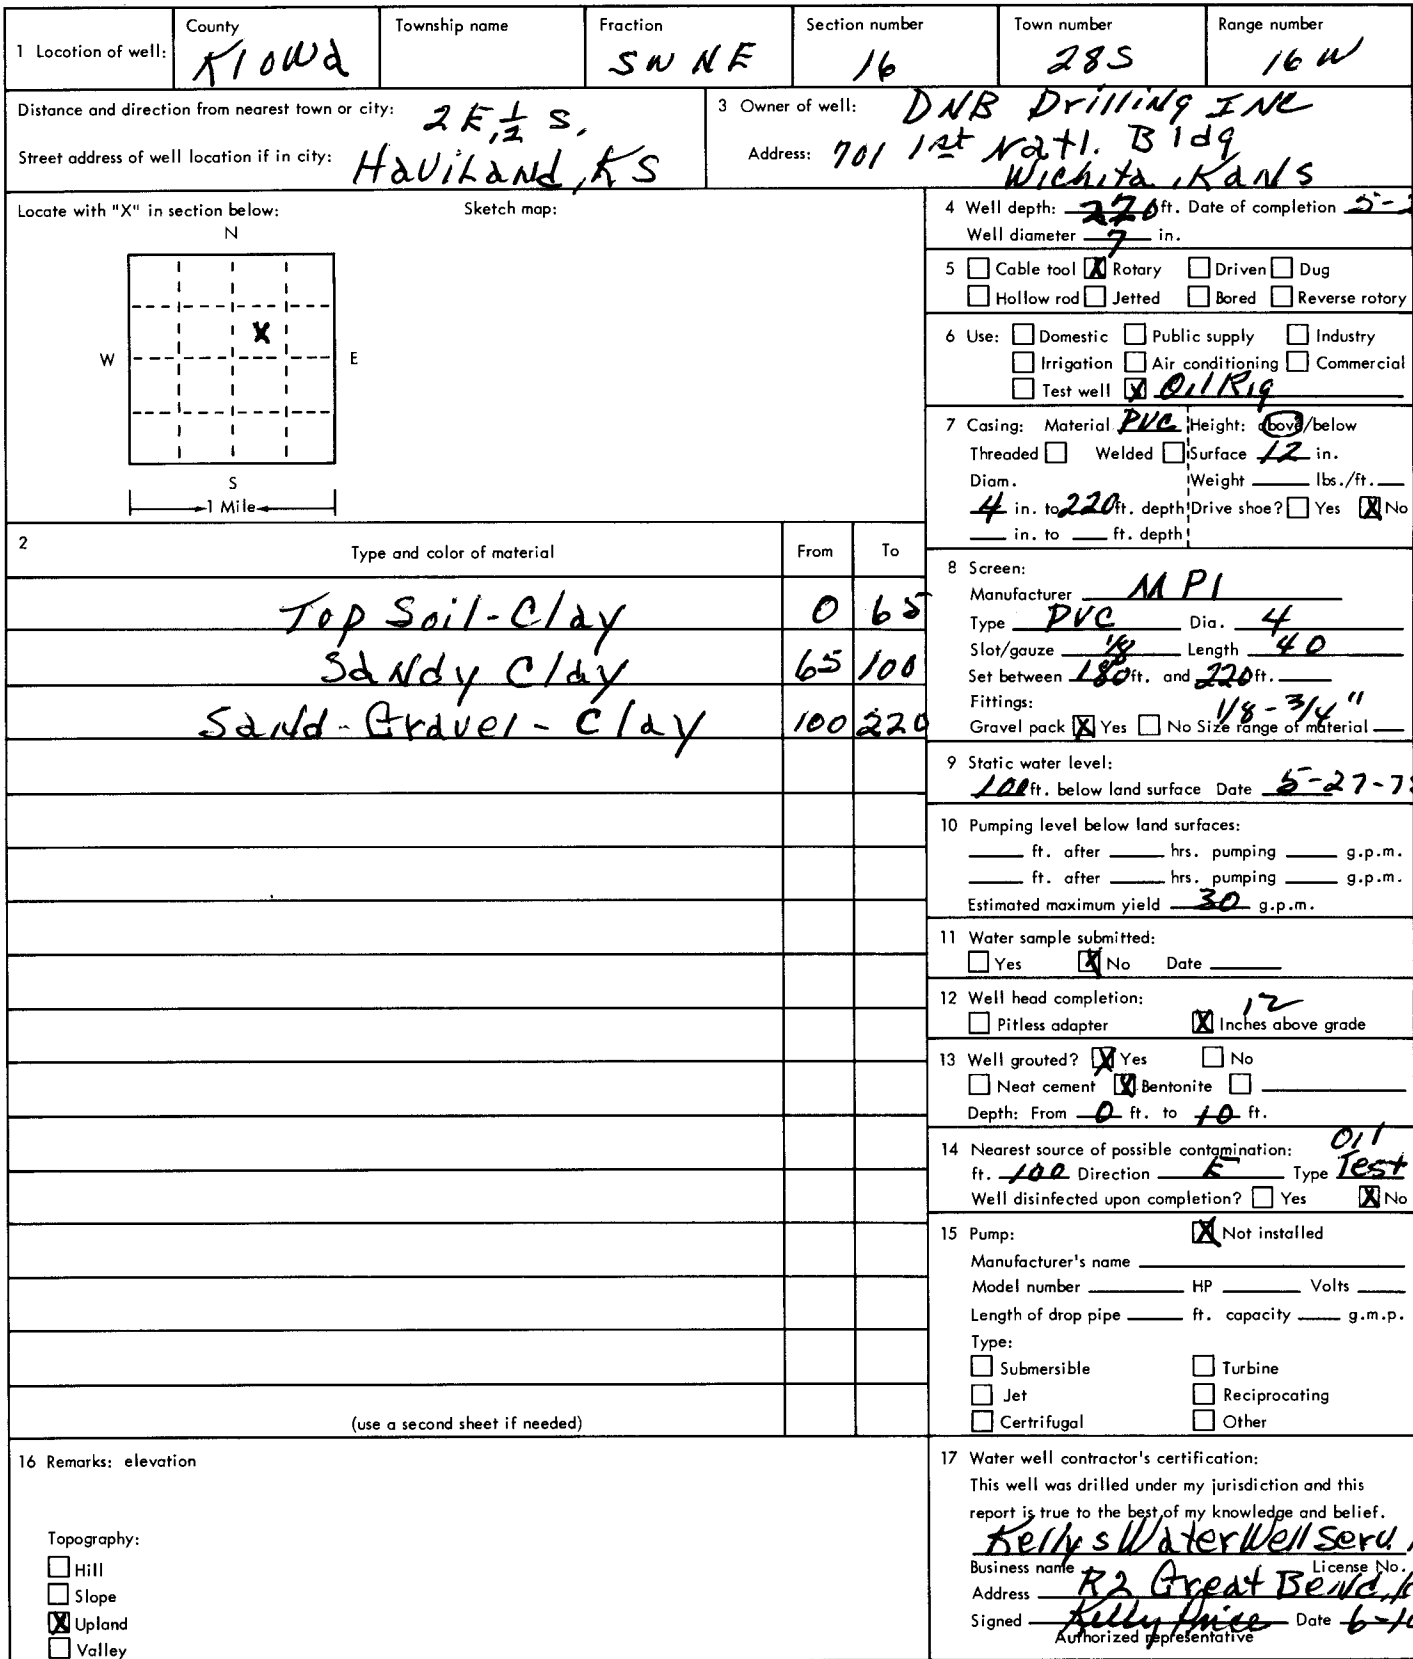 1 Location of well: County Kiowa Township name Fraction SW NE Section number 16 Town number 28S Range number 16 W
Distance and direction from nearest town or city: 2 E, ½ S,
Street address of well location if in city: Haviland, KS
3 Owner of well: DNB Drilling INC
Address: 701 1st Natl. Bldg
Wichita, Kans
Locate with "X" in section below: Sketch map:
N
X
W E
S
1 Mile
2 Type and color of material From To
Top Soil-Clay 0 65
Sandy Clay 65 100
Sand-Gravel-Clay 100 220
(use a second sheet if needed)
4 Well depth: 220 ft. Date of completion 5-2
Well diameter 7 in.
5 Cable tool X Rotary Driven Dug
Hollow rod Jetted Bored Reverse rotary
6 Use: Domestic Public supply Industry
Irrigation Air conditioning Commercial
Test well X Oil Rig
7 Casing: Material PVC Height: above/below
Threaded Welded Surface 12 in.
Diam. Weight lbs./ft.
4 in. to 220 ft. depth Drive shoe? Yes X No
in. to ft. depth
8 Screen:
Manufacturer MPI
Type PVC Dia. 4
Slot/gauze 1/8 Length 40
Set between 180 ft. and 220 ft.
Fittings: 1/8 - 3/4"
Gravel pack X Yes No Size range of material
9 Static water level:
100 ft. below land surface Date 5-27-78
10 Pumping level below land surfaces:
ft. after hrs. pumping g.p.m.
ft. after hrs. pumping g.p.m.
Estimated maximum yield 30 g.p.m.
11 Water sample submitted:
Yes X No Date
12 Well head completion: 12
Pitless adapter X Inches above grade
13 Well grouted? X Yes No
Neat cement X Bentonite
Depth: From 0 ft. to 10 ft.
14 Nearest source of possible contamination: Oil
ft. 100 Direction E Type Test
Well disinfected upon completion? Yes X No
15 Pump: X Not installed
Manufacturer's name
Model number HP Volts
Length of drop pipe ft. capacity g.m.p.
Type:
Submersible Turbine
Jet Reciprocating
Certrifugal Other
16 Remarks: elevation
Topography:
Hill
Slope
X Upland
Valley
17 Water well contractor's certification:
This well was drilled under my jurisdiction and this
report is true to the best of my knowledge and belief.
Kellys Water Well Serv.
Business name License No.
Address R2 Great Bend, K
Signed Kelly Price Date 6-1
Authorized representative